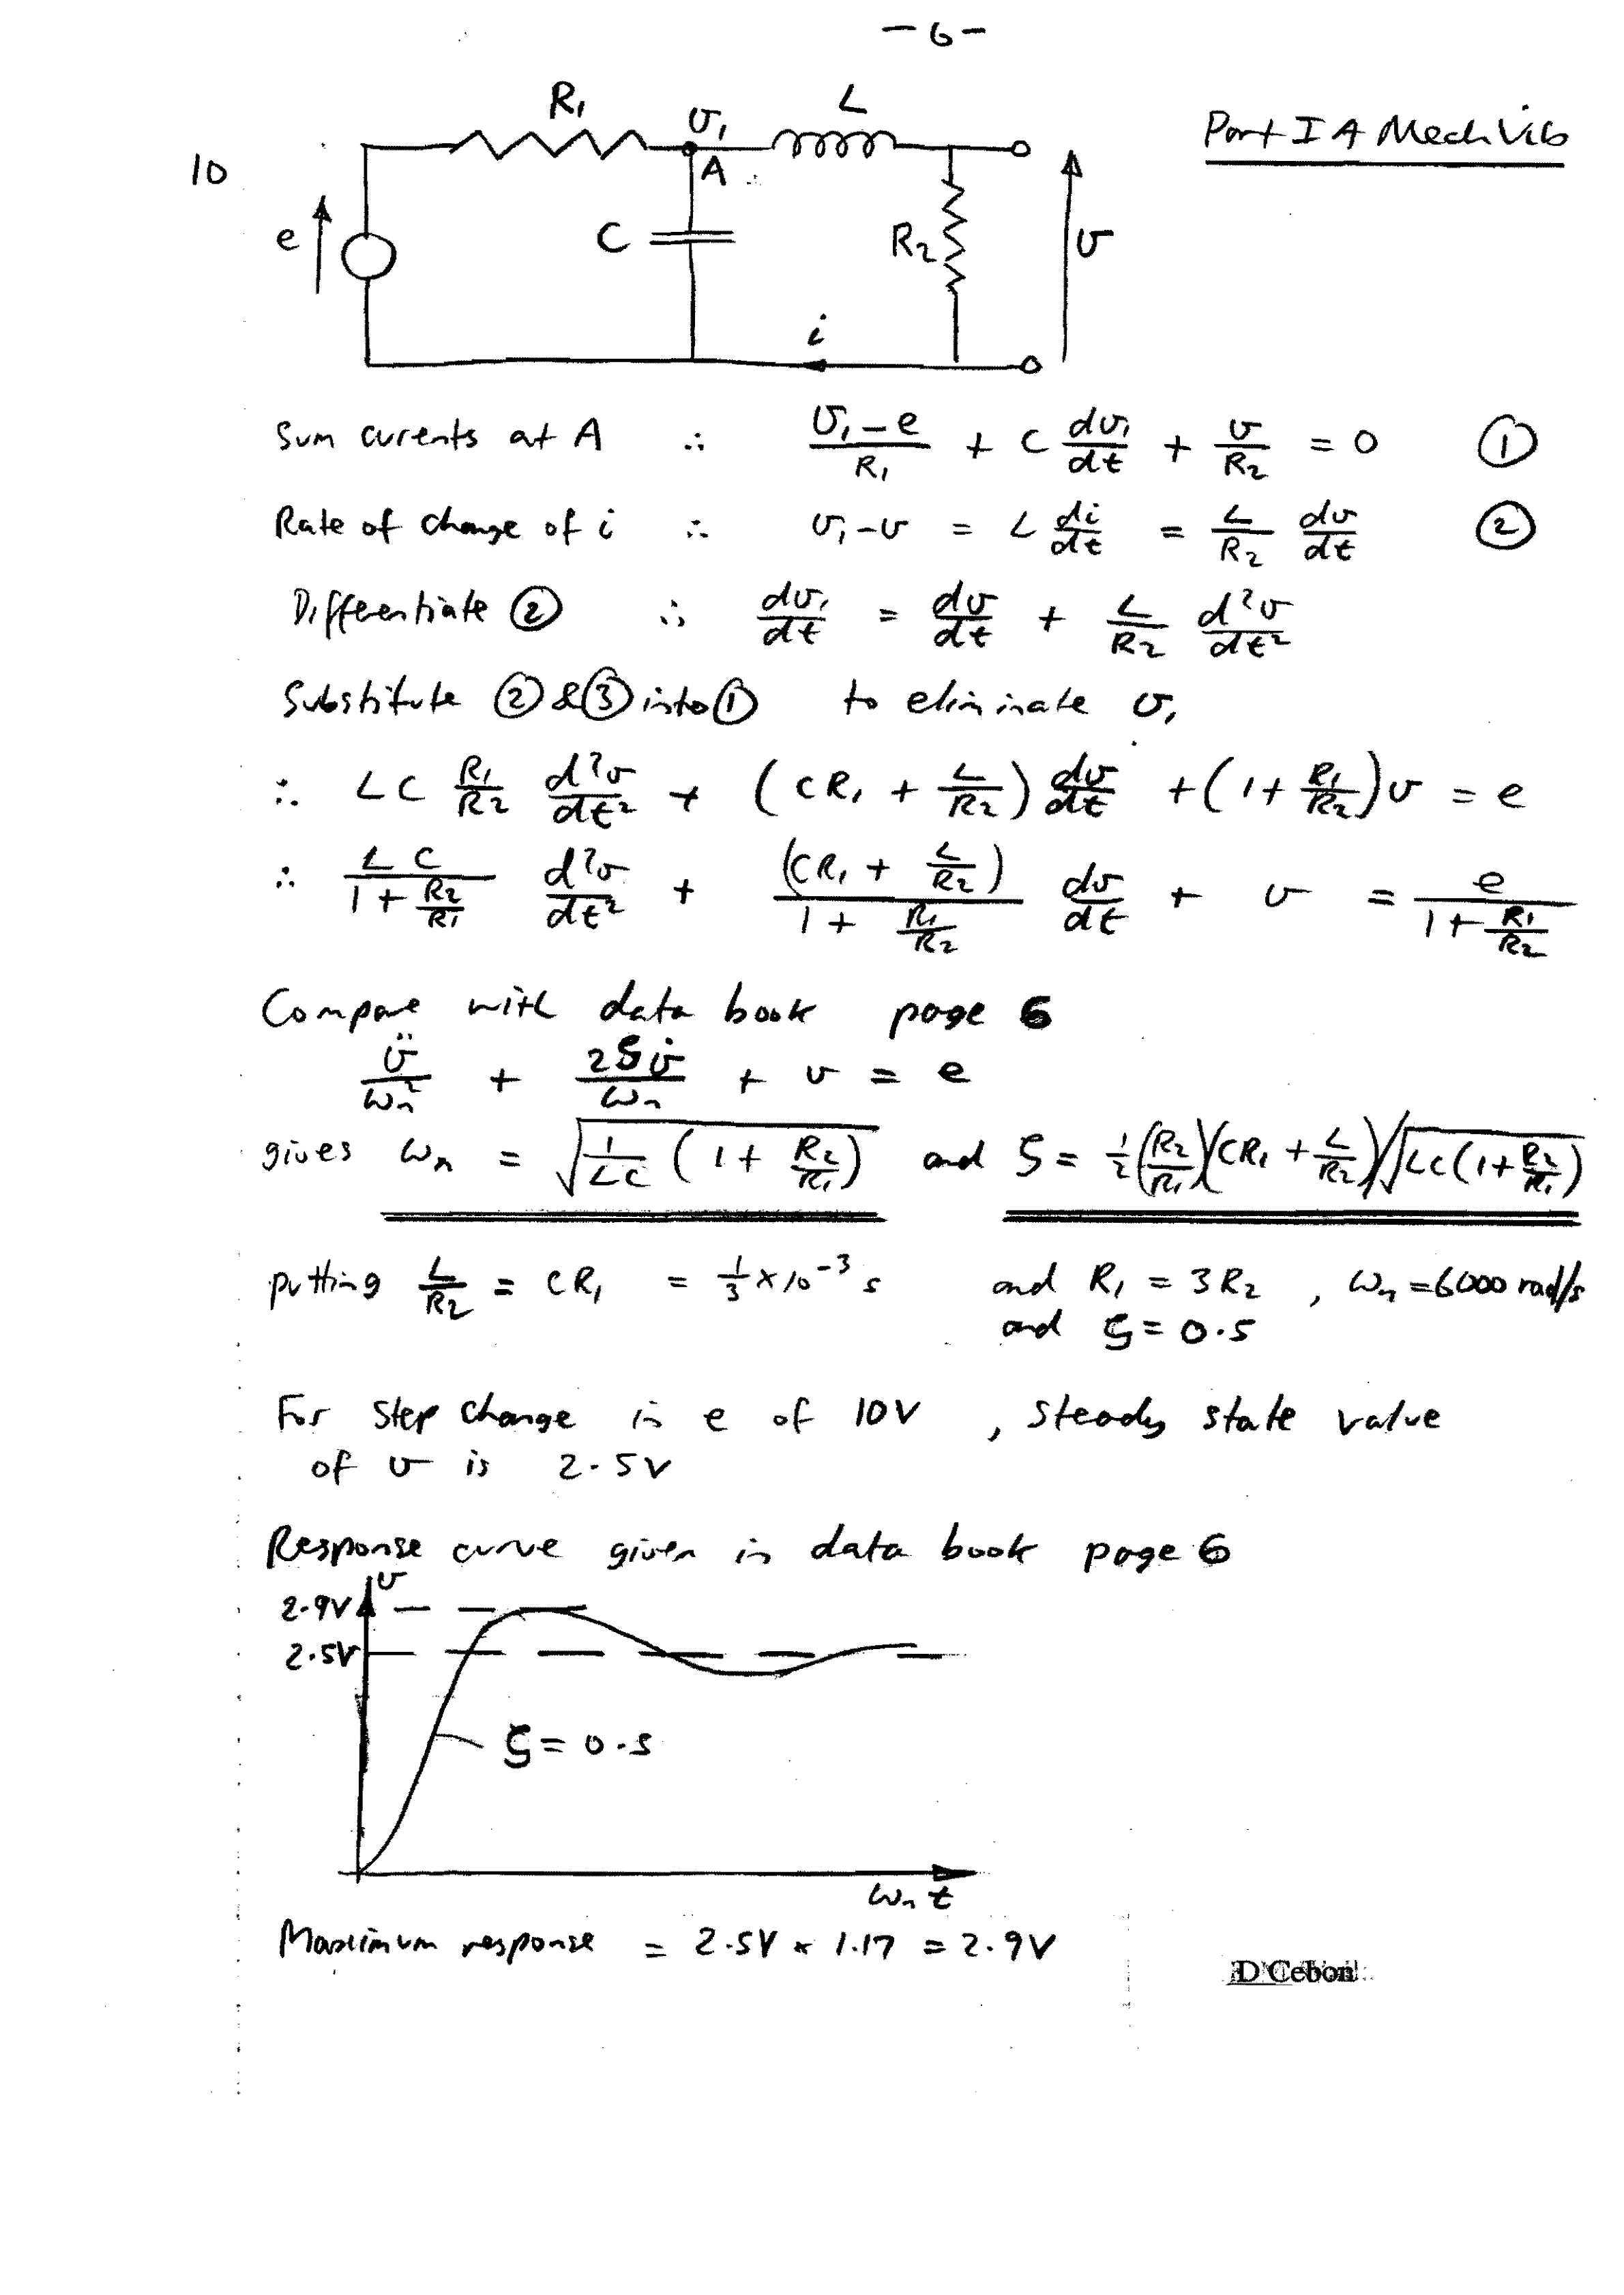 - 6 -
Part IA Mech Vib
10
R₁ v₁ L
A
e C R₂ v
i
Sum currents at A ∴ (v₁ - e)/R₁ + C dv₁/dt + v/R₂ = 0 ①
Rate of change of i ∴ v₁ - v = L di/dt = L/R₂ dv/dt ②
Differentiate ② ∴ dv₁/dt = dv/dt + L/R₂ d²v/dt²
Substitute ② & ③ into ① to eliminate v₁
∴ LC R₁/R₂ d²v/dt² + (CR₁ + L/R₂) dv/dt + (1 + R₁/R₂)v = e
∴ LC/(1 + R₂/R₁) d²v/dt² + (CR₁ + L/R₂)/(1 + R₁/R₂) dv/dt + v = e/(1 + R₁/R₂)
Compare with data book page 6
v̈/ωn² + 2ζv̇/ωn + v = e
gives ωn = √(1/LC (1 + R₂/R₁)) and ζ = ½(R₂/R₁)(CR₁ + L/R₂)/√(LC(1 + R₂/R₁))
putting L/R₂ = CR₁ = ⅓ × 10⁻³ s and R₁ = 3R₂, ωn = 6000 rad/s
and ζ = 0.5
For step change in e of 10V, steady state value
of v is 2.5V
Response curve given in data book page 6
v
2.9V
2.5V
ζ = 0.5
ωn t
Maximum response = 2.5V × 1.17 = 2.9V
D Cebon